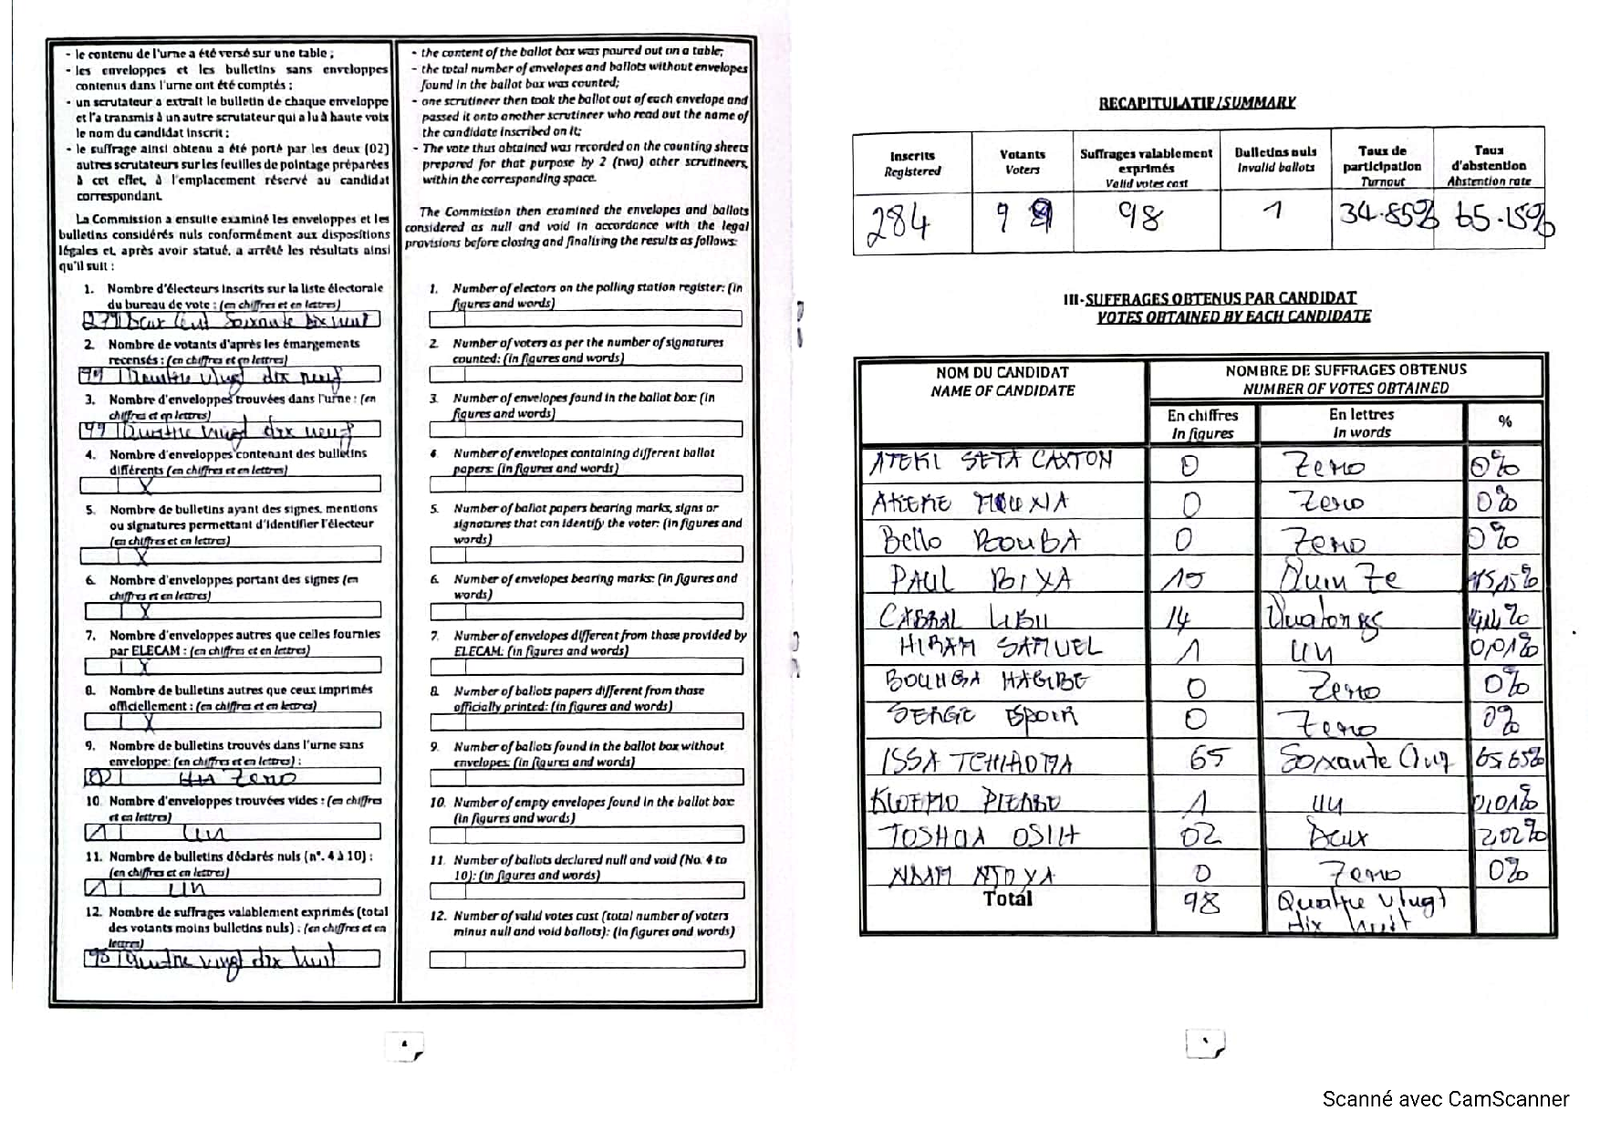 - le contenu de l'urne a été versé sur une table ;
- les enveloppes et les bulletins sans enveloppes
contenus dans l'urne ont été comptés ;
- un scrutateur a extrait le bulletin de chaque enveloppe
et l'a transmis à un autre scrutateur qui a lu à haute voix
le nom du candidat inscrit ;
- le suffrage ainsi obtenu a été porté par les deux (02)
autres scrutateurs sur les feuilles de pointage préparées
à cet effet, à l'emplacement réservé au candidat
correspondant.
La Commission a ensuite examiné les enveloppes et les
bulletins considérés nuls conformément aux dispositions
légales et, après avoir statué, a arrêté les résultats ainsi
qu'il suit :
1. Nombre d'électeurs inscrits sur la liste électorale
du bureau de vote : (en chiffres et en lettres)
Deux Cent Soixante dix
2. Nombre de votants d'après les émargements
recensés : (en chiffres et en lettres)
99 Quatre vingt dix neuf
3. Nombre d'enveloppes trouvées dans l'urne : (en
chiffres et en lettres)
99 Quatre vingt dix neuf
4. Nombre d'enveloppes contenant des bulletins
différents (en chiffres et en lettres)
X
5. Nombre de bulletins ayant des signes, mentions
ou signatures permettant d'identifier l'électeur
(en chiffres et en lettres)
X
6. Nombre d'enveloppes portant des signes (en
chiffres et en lettres)
X
7. Nombre d'enveloppes autres que celles fournies
par ELECAM : (en chiffres et en lettres)
X
8. Nombre de bulletins autres que ceux imprimés
officiellement : (en chiffres et en lettres)
X
9. Nombre de bulletins trouvés dans l'urne sans
enveloppe: (en chiffres et en lettres) :
Zero
10. Nombre d'enveloppes trouvées vides : (en chiffres
et en lettres)
1 un
11. Nombre de bulletins déclarés nuls (n°. 4 à 10) :
(en chiffres et en lettres)
1 un
12. Nombre de suffrages valablement exprimés (total
des votants moins bulletins nuls) : (en chiffres et en
lettres)
98 Quatre vingt dix huit
- the content of the ballot box was poured out on a table;
- the total number of envelopes and ballots without envelopes
found in the ballot box was counted;
- one scrutineer then took the ballot out of each envelope and
passed it onto another scrutineer who read out the name of
the candidate inscribed on it;
- The vote thus obtained was recorded on the counting sheets
prepared for that purpose by 2 (two) other scrutineers,
within the corresponding space.
The Commission then examined the envelopes and ballots
considered as null and void in accordance with the legal
provisions before closing and finalising the results as follows:
1. Number of electors on the polling station register: (in
figures and words)
2. Number of voters as per the number of signatures
counted: (in figures and words)
3. Number of envelopes found in the ballot box (in
figures and words)
4. Number of envelopes containing different ballot
papers: (in figures and words)
5. Number of ballot papers bearing marks, signs or
signatures that can identify the voter: (in figures and
words)
6. Number of envelopes bearing marks: (in figures and
words)
7. Number of envelopes different from those provided by
ELECAM: (in figures and words)
8. Number of ballots papers different from those
officially printed: (in figures and words)
9. Number of ballots found in the ballot box without
envelopes: (in figures and words)
10. Number of empty envelopes found in the ballot box:
(in figures and words)
11. Number of ballots declared null and void (No. 4 to
10): (in figures and words)
12. Number of valid votes cast (total number of voters
minus null and void ballots): (in figures and words)
RECAPITULATIF/SUMMARY
Inscrits Votants Suffrages valablement exprimés Bulletins nuls Taux de participation Taux d'abstention
Registered Voters Valid votes cast Invalid ballots Turnout Abstention rate
284 99 98 1 34.85% 65.15%
III-SUFFRAGES OBTENUS PAR CANDIDAT
VOTES OBTAINED BY EACH CANDIDATE
NOM DU CANDIDAT NOMBRE DE SUFFRAGES OBTENUS
NAME OF CANDIDATE NUMBER OF VOTES OBTAINED
En chiffres En lettres %
In figures In words
ATEKI SETA CAXTON 0 Zero 0%
0 Zero 0%
Bello BOUBA 0 Zero 0%
PAUL BIYA 15 Quinze 15,15%
CABRAL LIBII 14 Quatorze
HIRAM SAMUEL 1 un 0,01%
BOUHGA HAGIBE 0 Zero 0%
SERGE ESPOIR 0 Zero 0%
ISSA TCHIROMA 65 Soixante Cinq 65.65%
KWEMO PIERRE 1 un 0,01%
JOSHUA OSIH 02 Deux 2,02%
NJOYA 0 Zero 0%
Total 98 Quatre vingt
dix huit
Scanné avec CamScanner